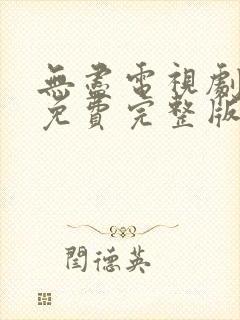 無盡電視劇
免費完整版
閆德英